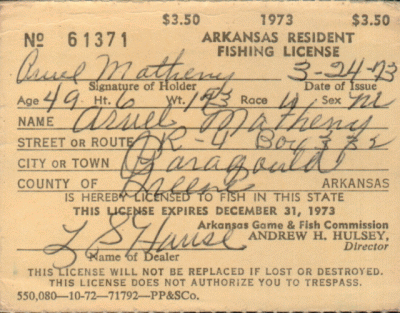 $3.50 1973 $3.50
No 61371 ARKANSAS RESIDENT
FISHING LICENSE
Arvel Matheny 3-24-73
Signature of Holder Date of Issue
Age 49 Ht. 6 Wt. 193 Race W Sex M
NAME Arvel Matheny
STREET OR ROUTE R-4 Box 332
CITY OR TOWN Paragould
COUNTY OF Greene ARKANSAS
IS HEREBY LICENSED TO FISH IN THIS STATE
THIS LICENSE EXPIRES DECEMBER 31, 1973
Arkansas Game & Fish Commission
L S House ANDREW H. HULSEY,
Name of Dealer Director
THIS LICENSE WILL NOT BE REPLACED IF LOST OR DESTROYED.
THIS LICENSE DOES NOT AUTHORIZE YOU TO TRESPASS.
550,080—10-72—71792—PP&SCo.